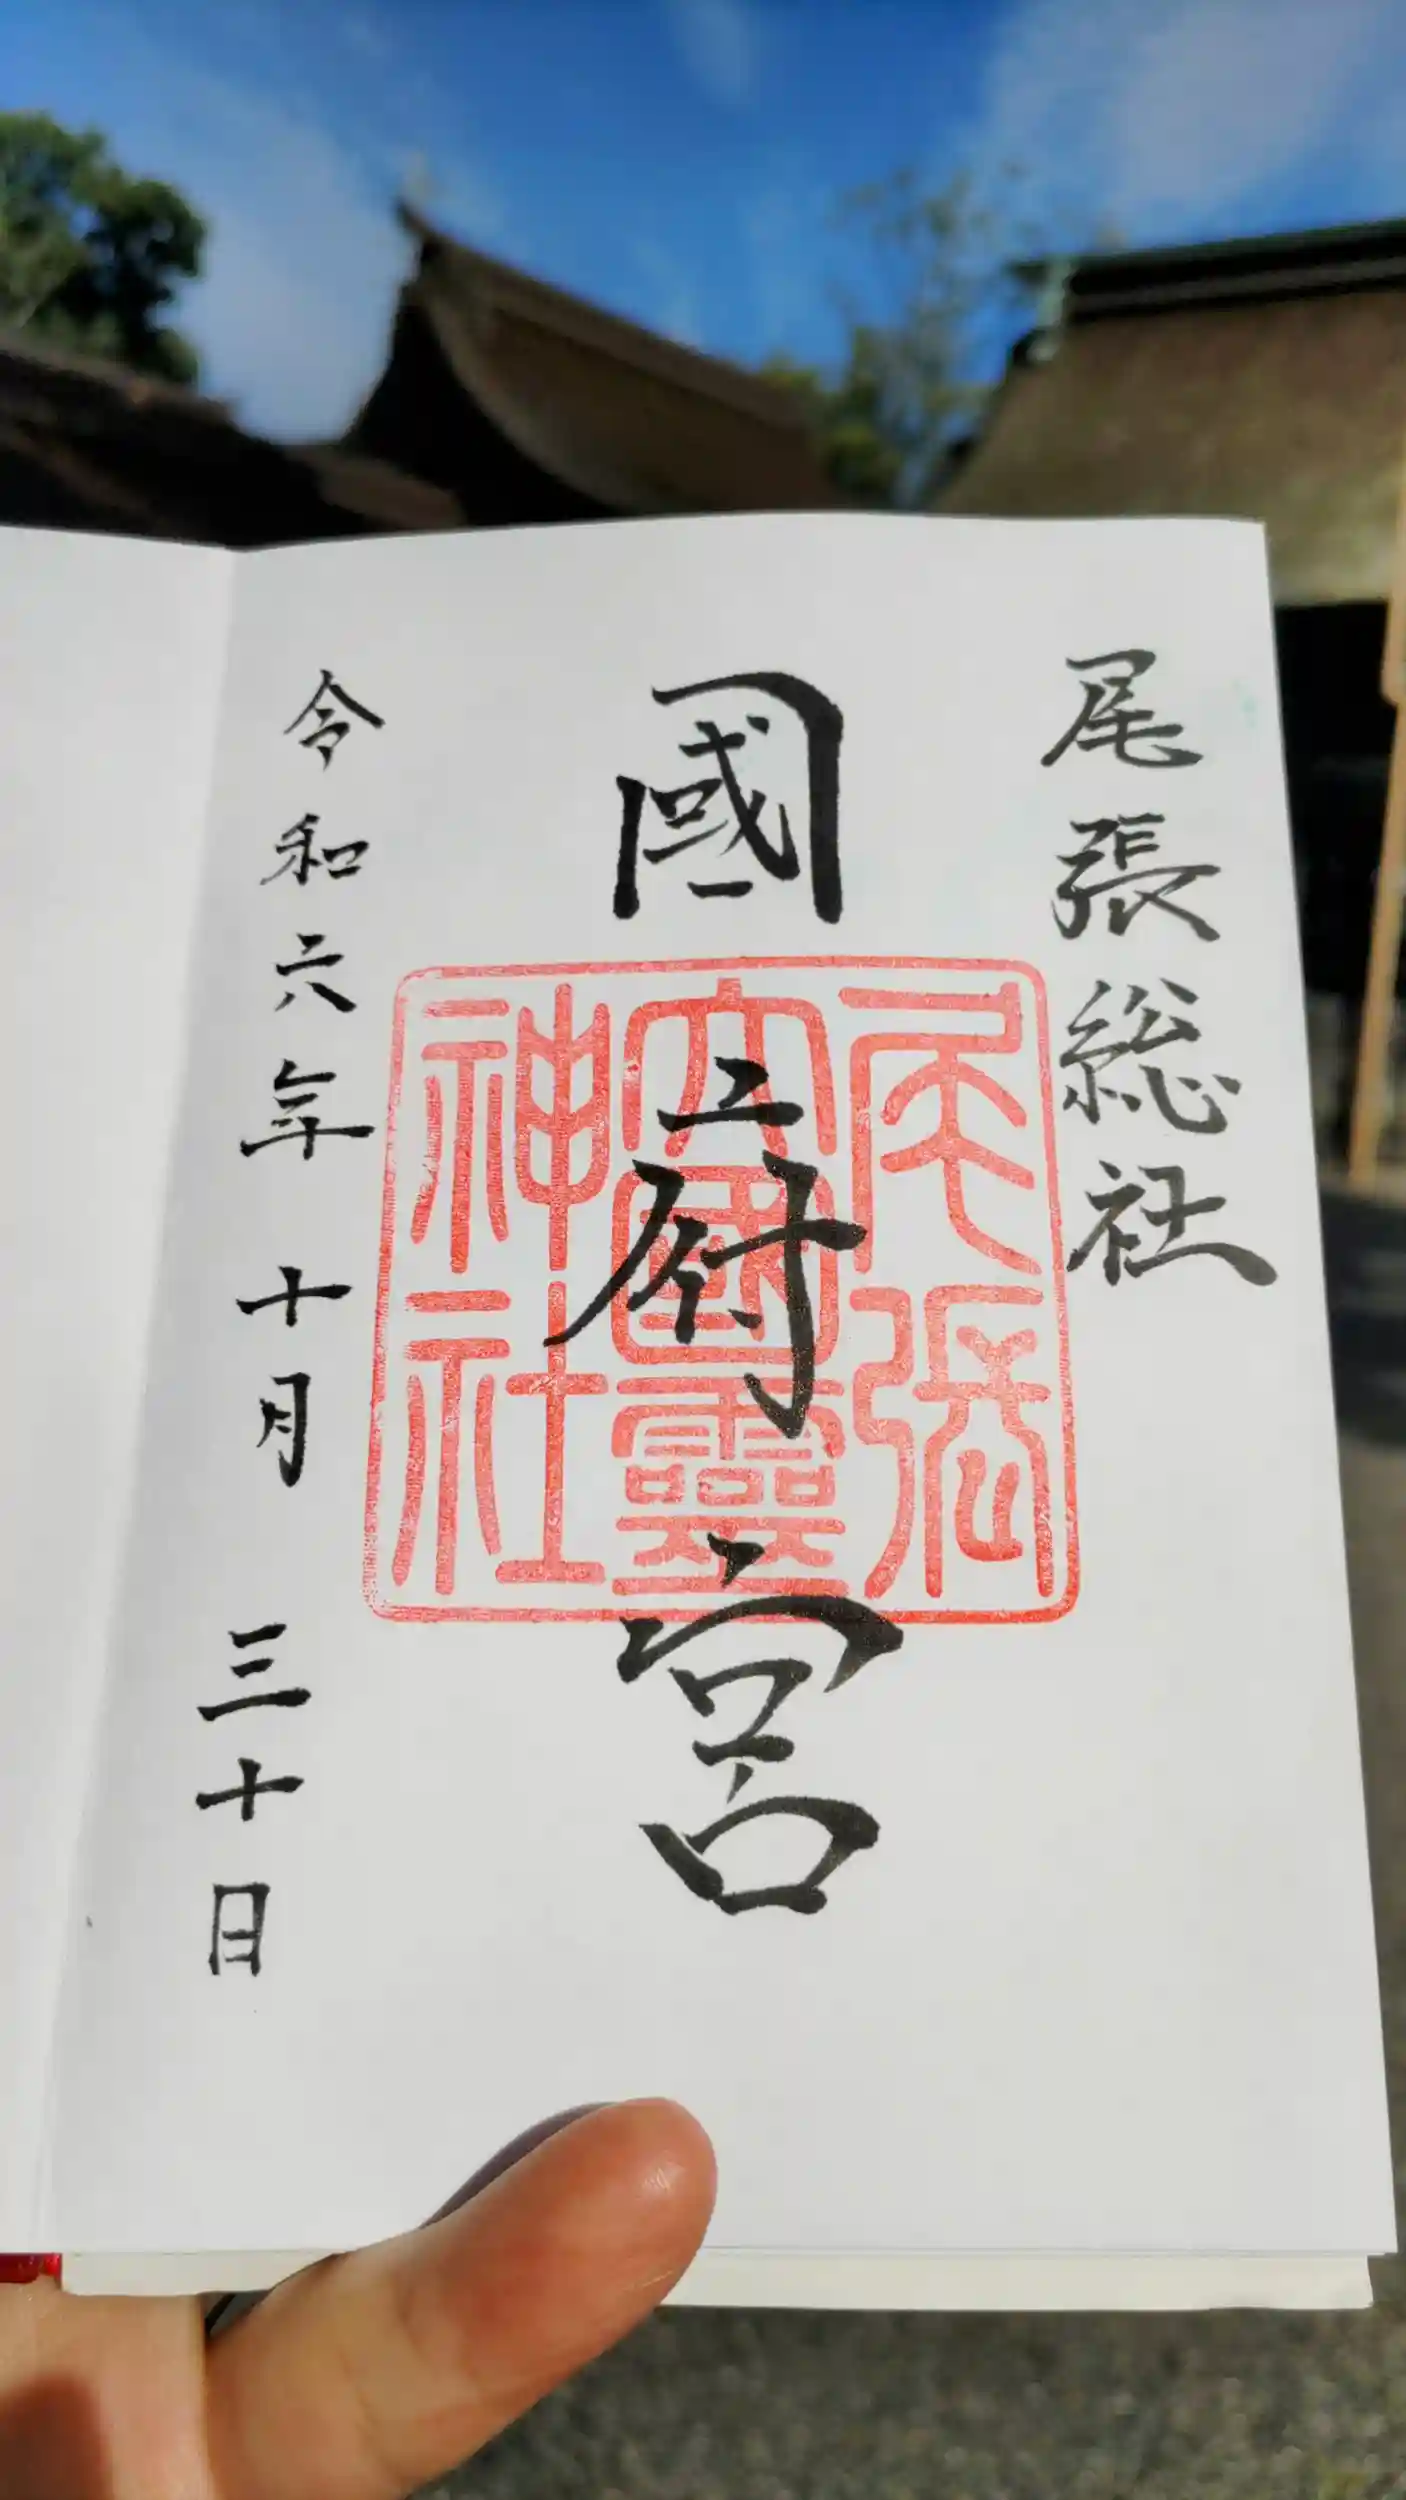 尾張総社
國府宮
尾張
大國霊
神社
令和六年十月三十日